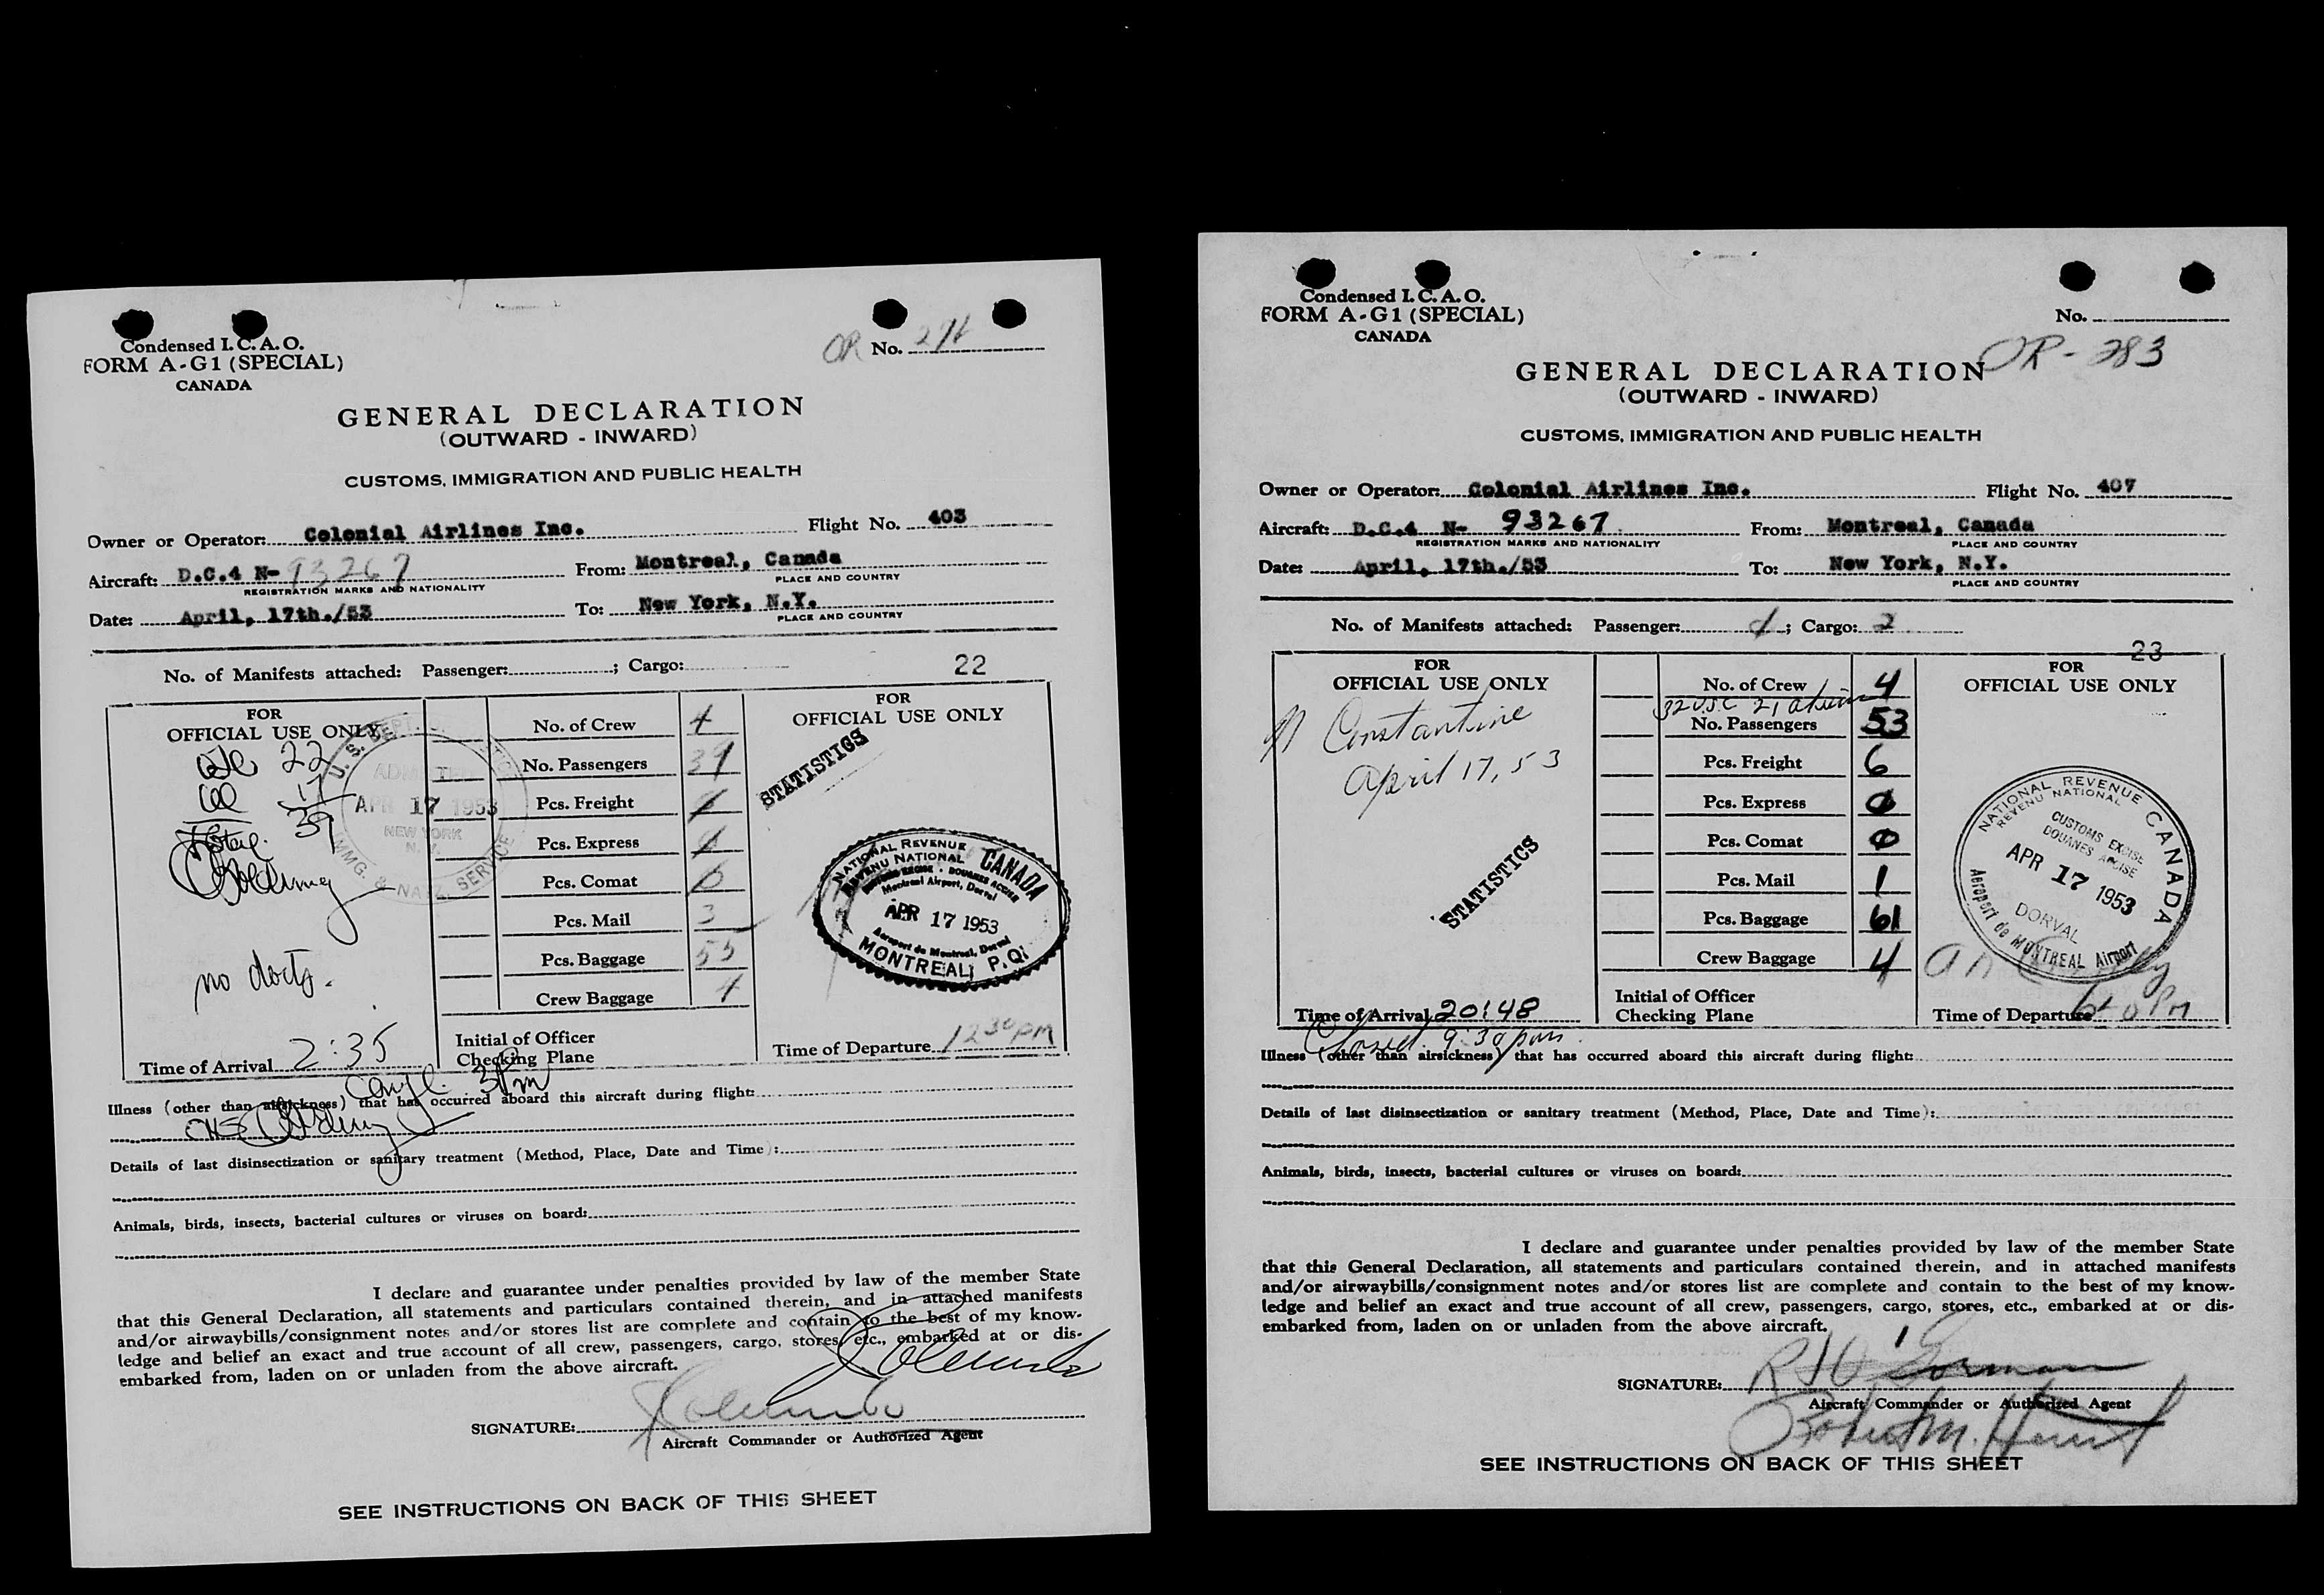 Condensed I. C. A. O.
FORM A-G1 (SPECIAL)
CANADA
OR No.
GENERAL DECLARATION
(OUTWARD - INWARD)
CUSTOMS, IMMIGRATION AND PUBLIC HEALTH
Owner or Operator: Colonial Airlines Inc. Flight No. 403
Aircraft: D.C.4 N- 93267 From: Montreal, Canada
REGISTRATION MARKS AND NATIONALITY PLACE AND COUNTRY
Date: April, 17th./53 To: New York, N.Y.
PLACE AND COUNTRY
No. of Manifests attached: Passenger: ; Cargo: 22
FOR
OFFICIAL USE ONLY
22
17
Total. 39
no docts.
U. S. DEPT. OF JUSTICE
ADMITTED
APR 17 1953
NEW YORK
N. Y.
IMMG. & NATZ. SERVICE
Time of Arrival 2:35
No. of Crew 4
No. Passengers 39
Pcs. Freight
Pcs. Express
Pcs. Comat
Pcs. Mail 3
Pcs. Baggage 55
Crew Baggage 4
Initial of Officer
Checking Plane
FOR
OFFICIAL USE ONLY
STATISTICS
NATIONAL REVENUE CANADA
REVENU NATIONAL
CUSTOMS-EXCISE - DOUANES ACCISE
Montreal Airport, Dorval
APR 17 1953
Aeroport de Montreal, Dorval
MONTREAL P.Q.
Time of Departure 1230 PM
3 Pm
Illness (other than airsickness) that has occurred aboard this aircraft during flight:
Details of last disinsectization or sanitary treatment (Method, Place, Date and Time):
Animals, birds, insects, bacterial cultures or viruses on board:
I declare and guarantee under penalties provided by law of the member State
that this General Declaration, all statements and particulars contained therein, and in attached manifests
and/or airwaybills/consignment notes and/or stores list are complete and contain to the best of my know-
ledge and belief an exact and true account of all crew, passengers, cargo, stores, etc., embarked at or dis-
embarked from, laden on or unladen from the above aircraft.
SIGNATURE:
Aircraft Commander or Authorized Agent
SEE INSTRUCTIONS ON BACK OF THIS SHEET
Condensed I. C. A. O.
FORM A-G1 (SPECIAL)
CANADA
No.
OR - 283
GENERAL DECLARATION
(OUTWARD - INWARD)
CUSTOMS, IMMIGRATION AND PUBLIC HEALTH
Owner or Operator: Colonial Airlines Inc. Flight No. 407
Aircraft: D.C.4 N- 93267 From: Montreal, Canada
REGISTRATION MARKS AND NATIONALITY PLACE AND COUNTRY
Date: April, 17th./53 To: New York, N.Y.
PLACE AND COUNTRY
No. of Manifests attached: Passenger: ; Cargo: 2
23
FOR
OFFICIAL USE ONLY
Constantine
April 17, 53
STATISTICS
Time of Arrival 20:48
Closed 9:30 pm
No. of Crew 4
32 U.S.C 21 alien
No. Passengers 53
Pcs. Freight 6
Pcs. Express 0
Pcs. Comat 0
Pcs. Mail 1
Pcs. Baggage 61
Crew Baggage 4
Initial of Officer
Checking Plane
FOR
OFFICIAL USE ONLY
NATIONAL REVENUE CANADA
REVENU NATIONAL
CUSTOMS EXCISE
DOUANES ACCISE
APR 17 1953
DORVAL
Aeroport de MONTREAL Airport
Time of Departure
Illness (other than airsickness) that has occurred aboard this aircraft during flight:
Details of last disinsectization or sanitary treatment (Method, Place, Date and Time):
Animals, birds, insects, bacterial cultures or viruses on board:
I declare and guarantee under penalties provided by law of the member State
that this General Declaration, all statements and particulars contained therein, and in attached manifests
and/or airwaybills/consignment notes and/or stores list are complete and contain to the best of my know-
ledge and belief an exact and true account of all crew, passengers, cargo, stores, etc., embarked at or dis-
embarked from, laden on or unladen from the above aircraft.
SIGNATURE: R J O'Gorman
Aircraft Commander or Authorized Agent
Robert M. Hunt
SEE INSTRUCTIONS ON BACK OF THIS SHEET